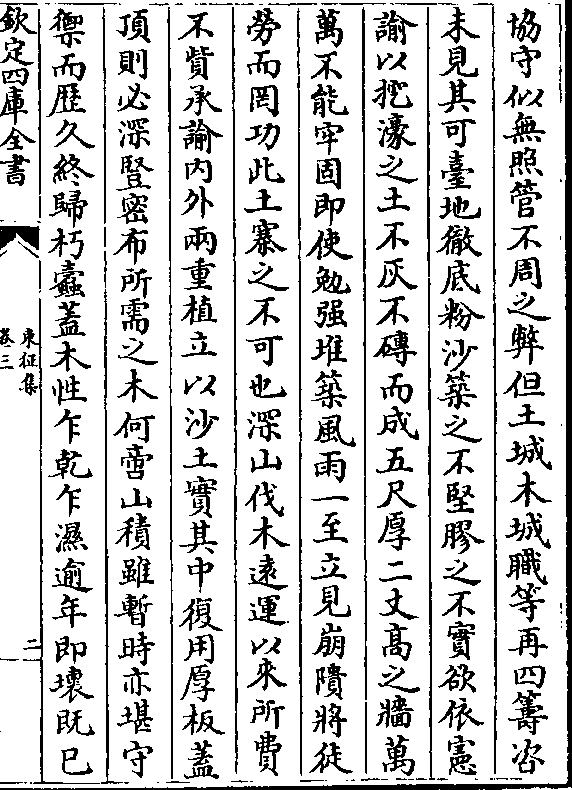 協守似無照管不周之弊但土城木城職等再四籌咨
未見其可臺地徹底粉沙築之不堅膠之不實欲依憲
諭以挖濠之土不灰不磚而成五尺厚二丈高之牆萬
萬不能牢固即使勉强堆築風雨一至立見崩隤將徒
勞而罔功此土寨之不可也深山伐木遠運以來所費
不貲承諭內外兩重植立以沙土實其中復用厚板蓋
頂則必深豎密布所需之木何啻山積雖暫時亦堪守
禦而歷久終歸朽蠹蓋木性乍乾乍濕逾年即壞既已
欽定四庫全書
東征集
卷三
二